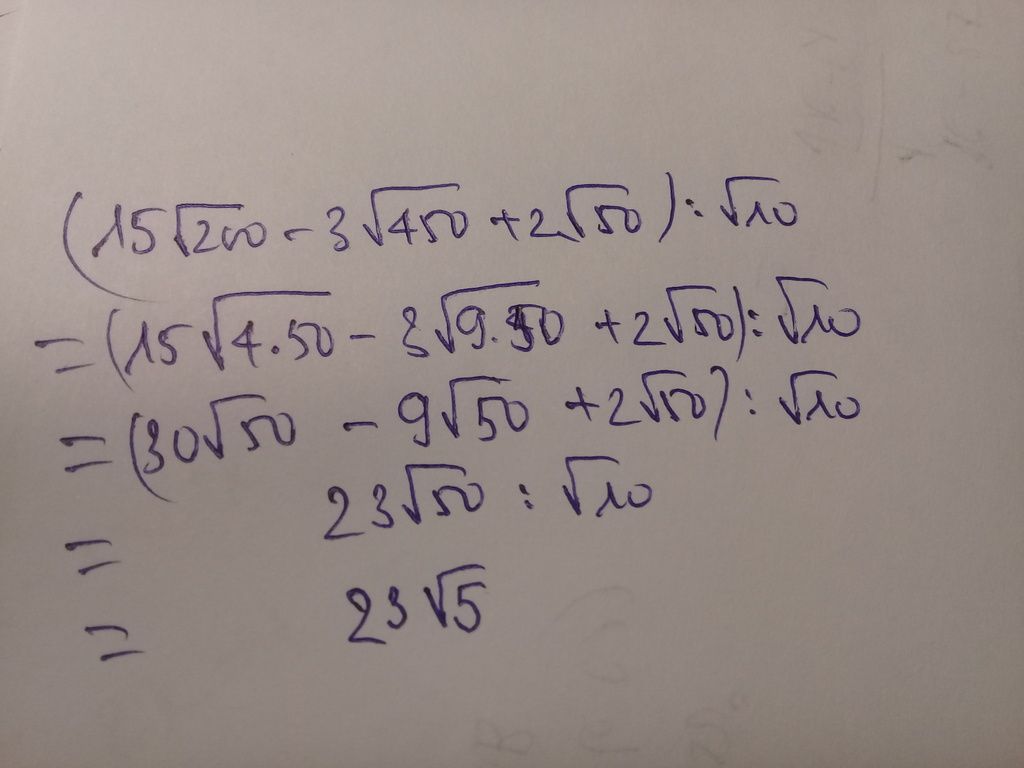 (15√200 - 3√450 + 2√50) : √10
= (15√4.50 - 3√9.50 + 2√50) : √10
= (30√50 - 9√50 + 2√50) : √10
= 23√50 : √10
= 23√5